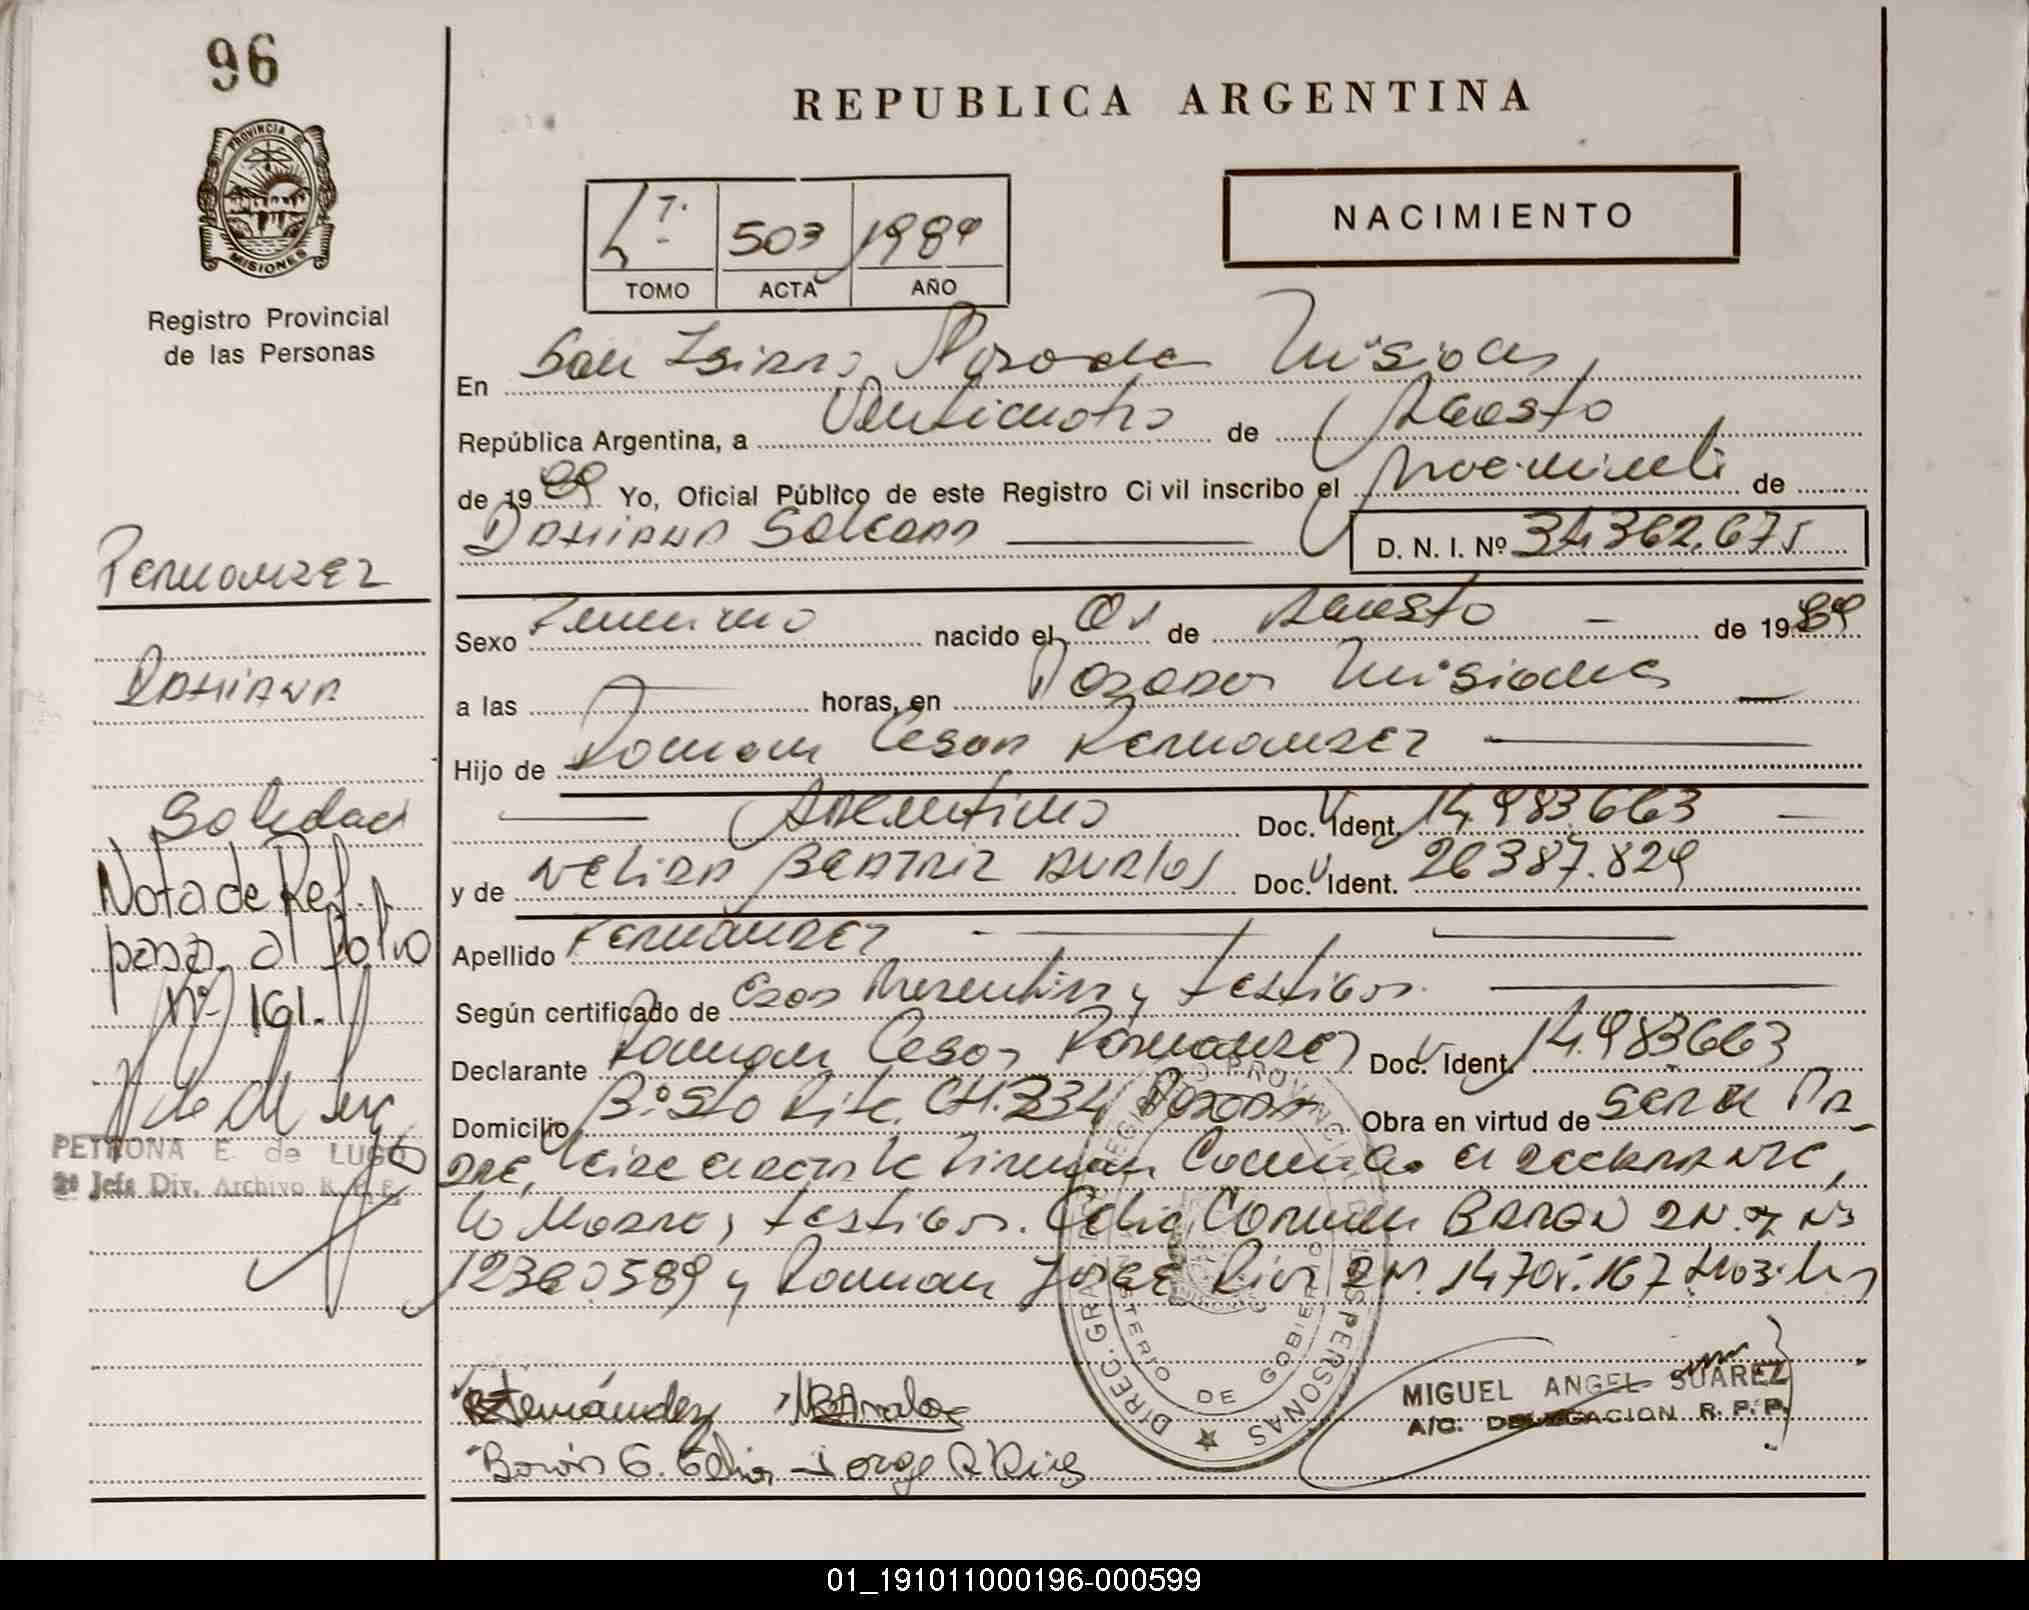 96
REPUBLICA ARGENTINA
PROVINCIA DE
MISIONES
Registro Provincial
de las Personas
503 1989
TOMO ACTA AÑO
NACIMIENTO
En San Isidro Posadas Misiones
República Argentina, a Veinticuatro de Agosto
de 1989 Yo, Oficial Público de este Registro Civil inscribo el nacimiento de
Damiana Soledad
D. N. I. Nº 34.362.675
Fernandez
Damiana
Soledad
Nota de Ref.
pasa al folio
Nº 161.
PETRONA E. de LUGO
2º Jefa Div. Archivo R. P. P.
Sexo Femenino nacido el 01 de Agosto de 1989
a las horas, en Posadas Misiones
Hijo de Roman Cesar Fernandez
Argentino Doc. Ident. 14.983.663
y de Nelida Beatriz Doc. Ident. 26387.829
Apellido Fernandez
Según certificado de Argentina y testigos.
Declarante Roman Cesar Fernandez Doc. Ident. 14.983663
Domicilio Bº Sto Rita. CH. 334 Posadas Obra en virtud de ser el Pa
dre, el declarante,
la Madre, testigos. Celia Carmen Baron
y Roman Jorge
DIREC. GRAL. REGISTRO PROVINCIAL DE LAS PERSONAS
MINISTERIO DE GOBIERNO
Fernández
Barón C. Celia Jorge R
MIGUEL ANGEL SUAREZ
A/C. DELEGACION R. P. P.
01_191011000196-000599